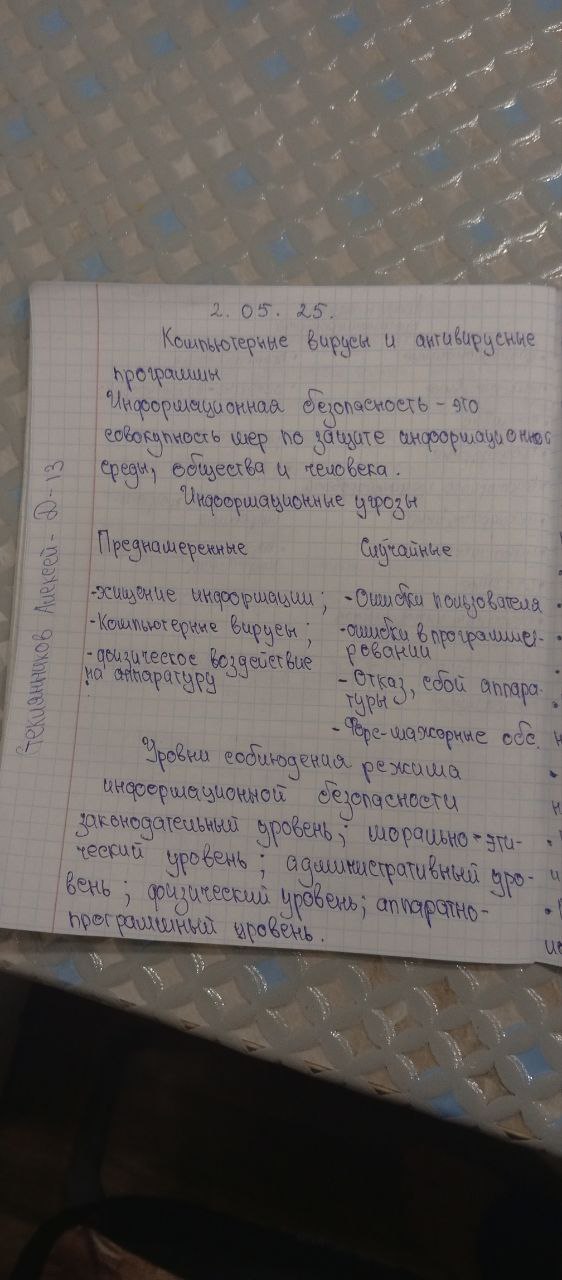 2. 05. 25.
Компьютерные вирусы и антивирусные
программы
Информационная безопасность - это
совокупность мер по защите информационной
среды, общества и человека.
Информационные угрозы
Преднамеренные
Случайные
-хищение информации;
-Компьютерные вирусы;
-физическое воздействие
на аппаратуру
-Ошибки пользователя
-ошибки в программи-
ровании
-Отказ, сбой аппара-
туры
-Форс-мажорные обс.
Уровни соблюдения режима
информационной безопасности
законодательный уровень; морально-эти-
ческий уровень; административный уро-
вень; физический уровень; аппаратно-
программный уровень.
Стекианников Алексей - Д-13